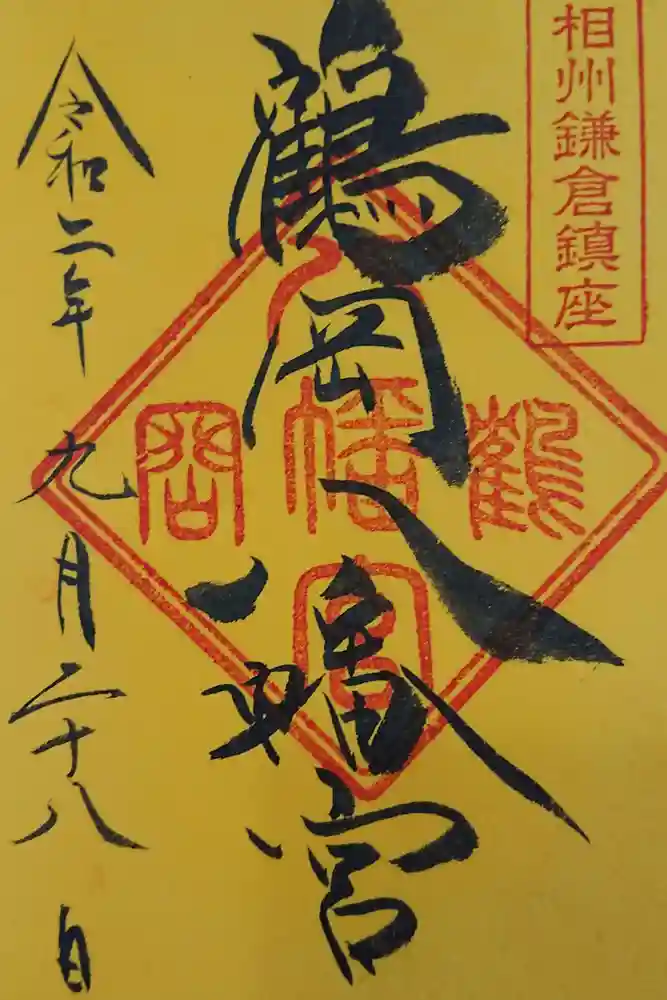 相州鎌倉鎮座
鶴岡八幡宮
鶴
八
幡
岡
宮
令和二年九月二十八日